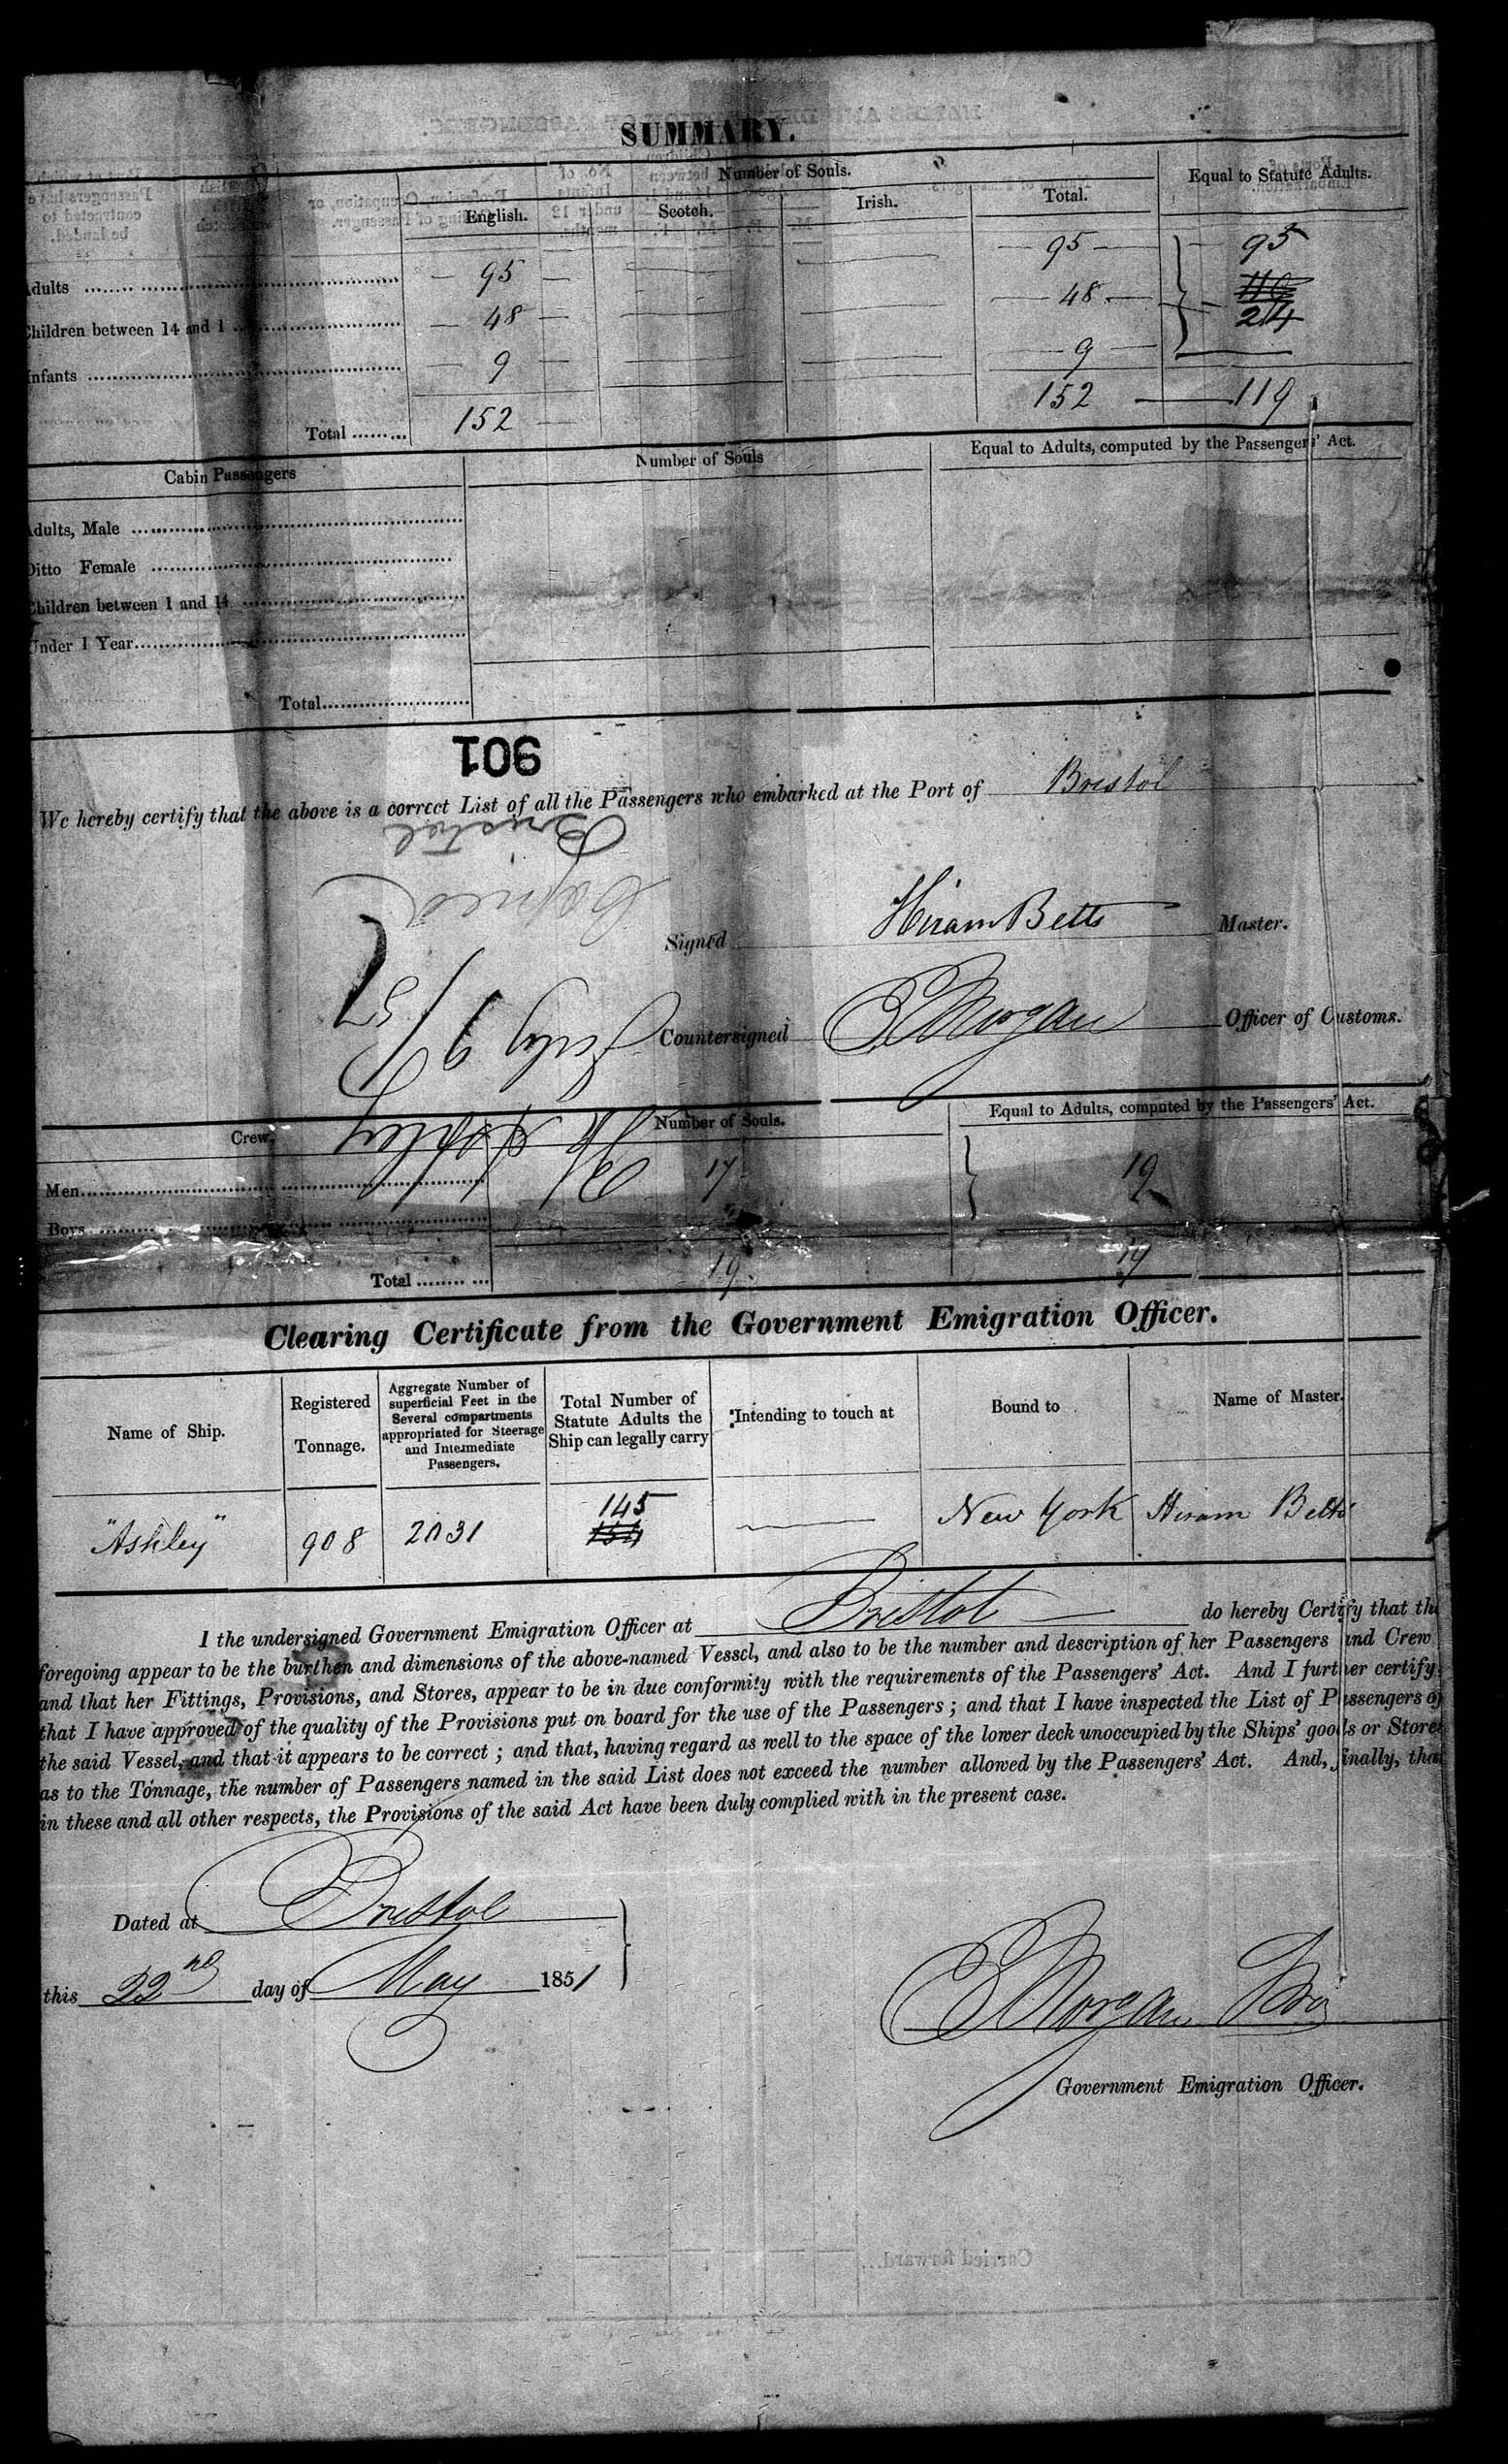 SUMMARY.
Number of Souls. Equal to Statute Adults.
English. Scotch. Irish. Total.
Adults 95 95 95
Children between 14 and 1 48 48 24
Infants 9 9
Total 152 152 119
Cabin Passengers Number of Souls Equal to Adults, computed by the Passengers' Act.
Adults, Male
Ditto Female
Children between 1 and 14
Under 1 Year
Total
901
We hereby certify that the above is a correct List of all the Passengers who embarked at the Port of Bristol
Bristol
Copied
Signed Hiram Betts Master.
July 9/51
Countersigned Morgan Officer of Customs.
Sh Ashley
Crew. Number of Souls. Equal to Adults, computed by the Passengers' Act.
Men 19
Boys
Total 19 19
Clearing Certificate from the Government Emigration Officer.
Name of Ship. Registered Tonnage. Aggregate Number of superficial Feet in the Several compartments appropriated for Steerage and Intermediate Passengers. Total Number of Statute Adults the Ship can legally carry Intending to touch at Bound to Name of Master.
"Ashley" 908 2031 145 New York Hiram Betts
I the undersigned Government Emigration Officer at Bristol do hereby Certify that the
foregoing appear to be the burthen and dimensions of the above-named Vessel, and also to be the number and description of her Passengers and Crew
and that her Fittings, Provisions, and Stores, appear to be in due conformity with the requirements of the Passengers' Act. And I further certify
that I have approved of the quality of the Provisions put on board for the use of the Passengers; and that I have inspected the List of Passengers of
the said Vessel, and that it appears to be correct; and that, having regard as well to the space of the lower deck unoccupied by the Ships' goods or Stores
as to the Tonnage, the number of Passengers named in the said List does not exceed the number allowed by the Passengers' Act. And, finally, that
in these and all other respects, the Provisions of the said Act have been duly complied with in the present case.
Dated at Bristol
this 22nd day of May 1851
Morgan
Government Emigration Officer.
Carried forward...